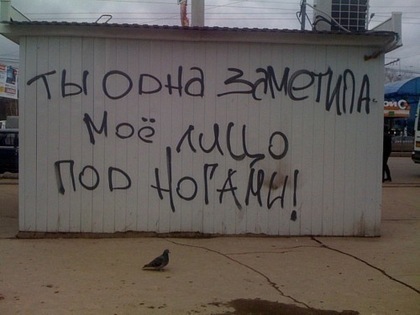 ты одна заметила
моё лицо
под ногами!